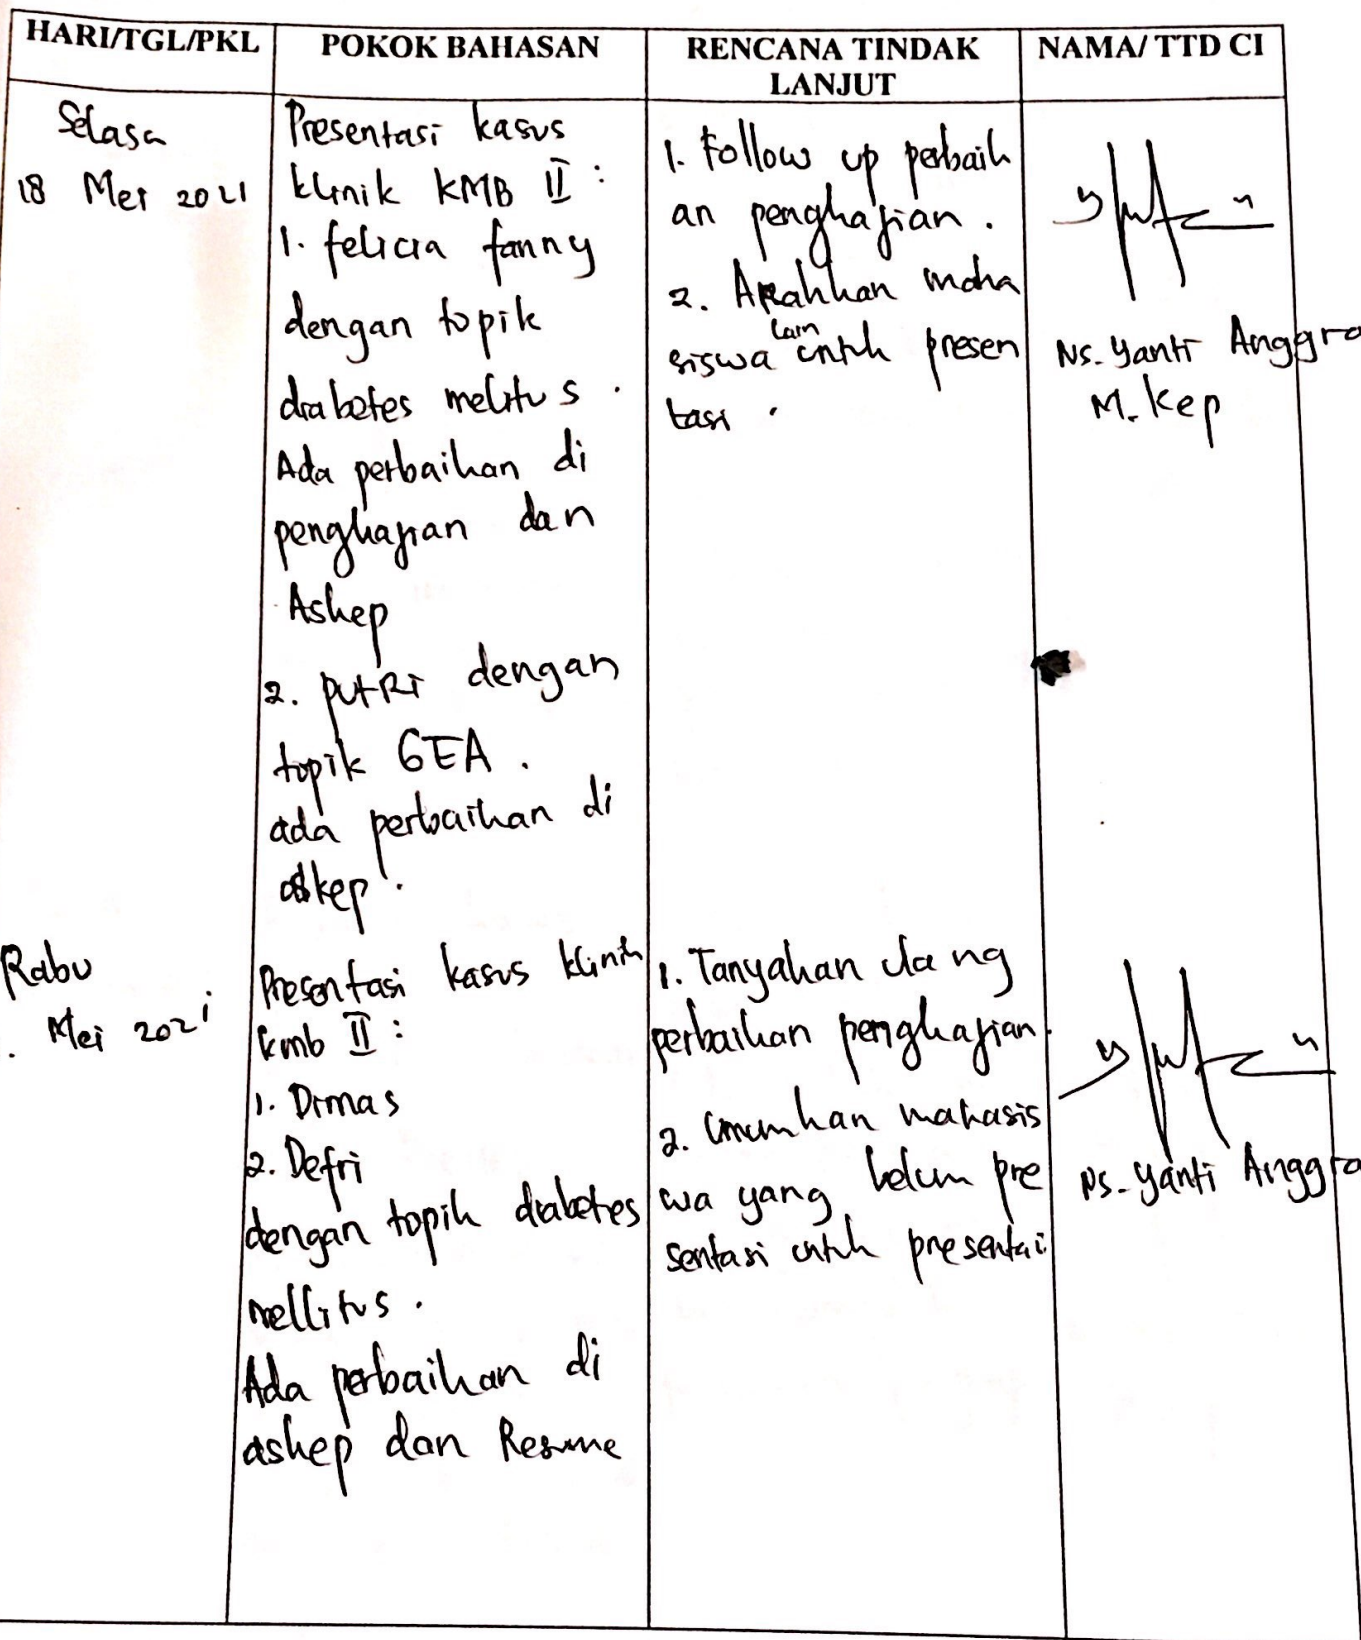 HARI/TGL/PKL
POKOK BAHASAN
RENCANA TINDAK
LANJUT
NAMA/ TTD CI
Selasa
18 Mei 2021
Presentasi kasus
klinik KMB II :
1. felicia fanny
dengan topik
diabetes melitus .
Ada perbaikan di
pengkajian dan
Askep
2. putRi dengan
topik GEA .
ada perbaikan di
askep .
1. Follow up perbaik
an pengkajian .
2. Arahkan maha
siswa lain untuk presen
tasi .
Ns. Yanti Anggra
M. Kep
Rabu
Mei 2021
Presentasi kasus klinik
kmb II :
1. Dimas
2. Defri
dengan topik diabetes
mellitus .
Ada perbaikan di
askep dan Resume
1. Tanyakan ulang
perbaikan pengkajian .
2. Umumkan mahasis
wa yang belum pre
sentasi untuk presentai
Ns. Yanti Anggra